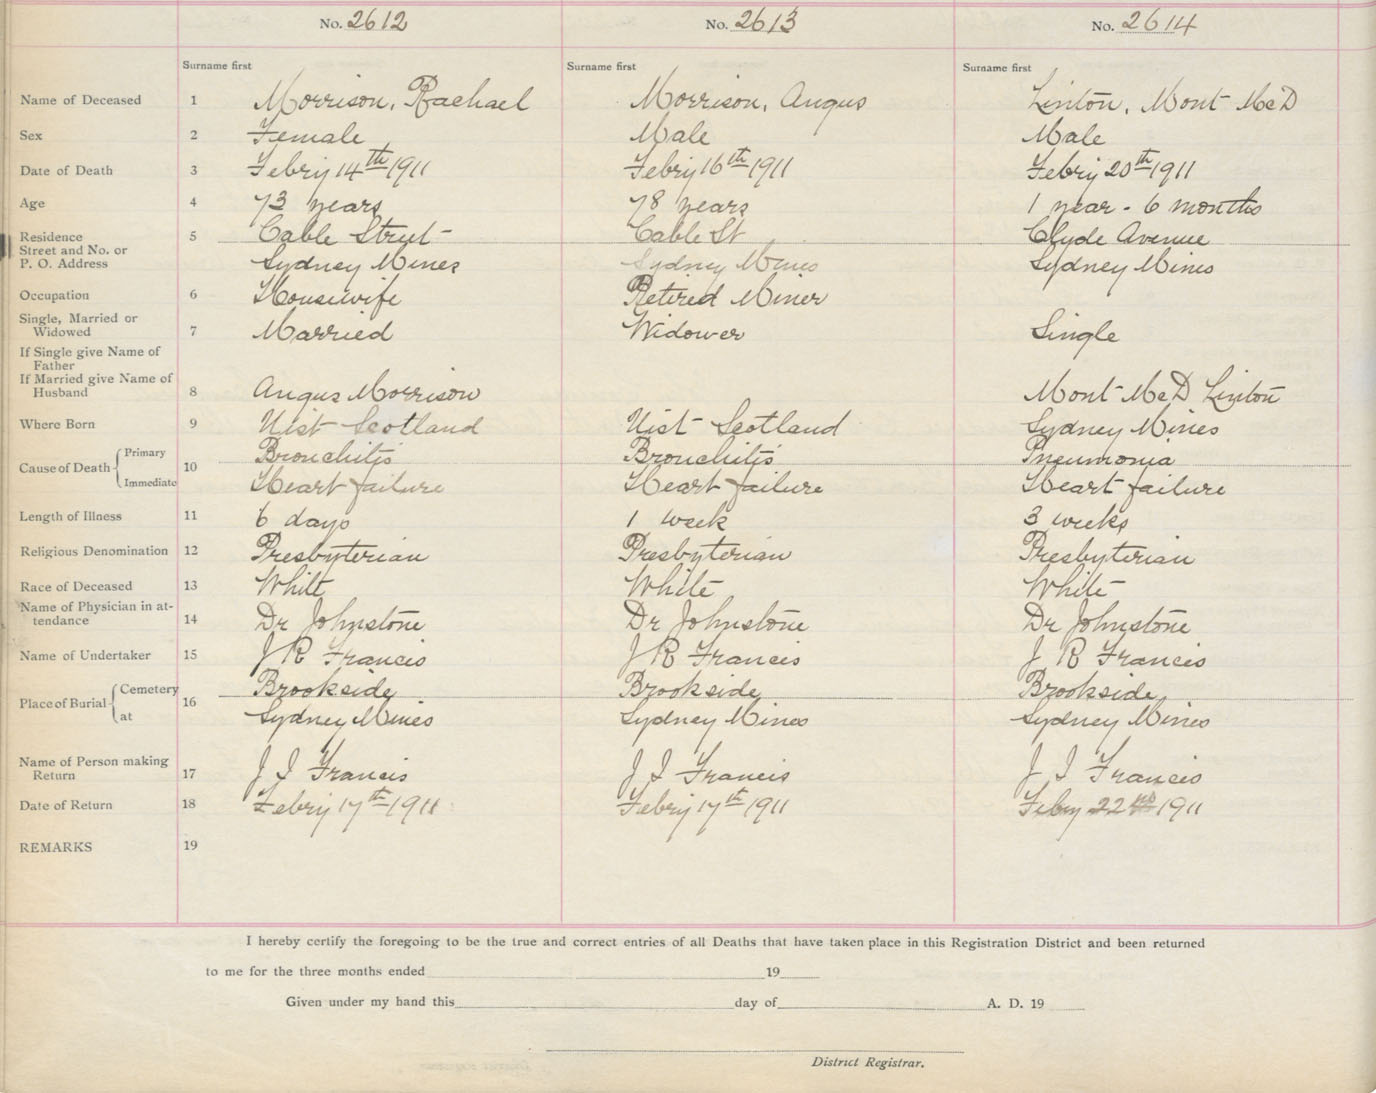 No. 2612 No. 2613 No. 2614
Surname first Surname first Surname first
Name of Deceased 1 Morrison, Rachael Morrison, Angus Linton, Mont McD
Sex 2 Female Male Male
Date of Death 3 Febry 14th 1911 Febry 16th 1911 Febry 20th 1911
Age 4 73 years 78 years 1 year - 6 months
Residence 5 Cable Street Cable St Clyde Avenue
Street and No. or
P. O. Address Sydney Mines Sydney Mines Sydney Mines
Occupation 6 Housewife Retired Miner
Single, Married or
Widowed 7 Married Widower Single
If Single give Name of
Father
If Married give Name of
Husband 8 Angus Morrison Mont McD Linton
Where Born 9 Uist Scotland Uist Scotland Sydney Mines
Primary Bronchitis Bronchitis Pneumonia
Cause of Death 10
Immediate Heart failure Heart failure Heart failure
Length of Illness 11 6 days 1 week 3 weeks
Religious Denomination 12 Presbyterian Presbyterian Presbyterian
Race of Deceased 13 White White White
Name of Physician in at-
tendance 14 Dr Johnstone Dr Johnstone Dr Johnstone
Name of Undertaker 15 J R Francis J R Francis J R Francis
Cemetery Brookside Brookside Brookside
Place of Burial 16
at Sydney Mines Sydney Mines Sydney Mines
Name of Person making
Return 17 J I Francis J I Francis J I Francis
Date of Return 18 Febry 17th 1911 Febry 17th 1911 Febry 22nd 1911
REMARKS 19
I hereby certify the foregoing to be the true and correct entries of all Deaths that have taken place in this Registration District and been returned
to me for the three months ended 19
Given under my hand this day of A. D. 19
District Registrar.